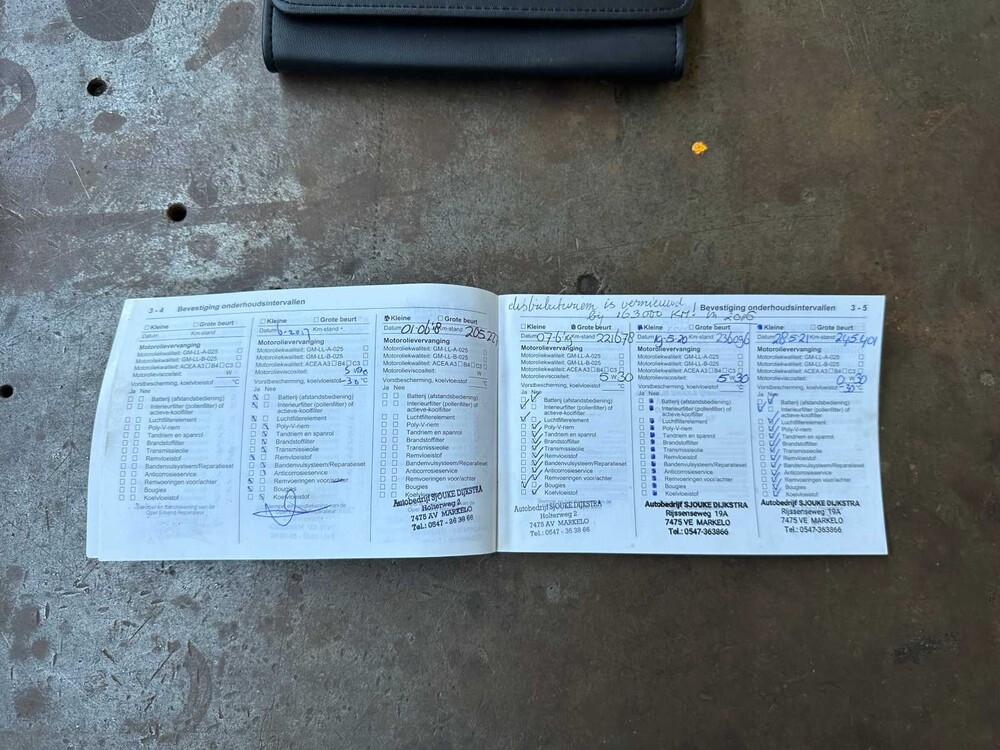 3 - 4 Bevestiging onderhoudsintervallen
Kleine Grote beurt
Datum Km-stand
Motorolievervanging
Motoroliekwaliteit: GM-LL-A-025
Motoroliekwaliteit: GM-LL-B-025
Motoroliekwaliteit: ACEA A3 B4 C3
Motorolieviscositeit: W
Vorstbescherming, koelvloeistof °C
Ja Nee
Batterij (afstandsbediening)
Interieurfilter (pollenfilter) of
actieve-koolfilter
Luchtfilterelement
Poly-V-riem
Tandriem en spanrol
Brandstoffilter
Transmissieolie
Remvloeistof
Bandenvulsysteem/Reparatieset
Anticorrosieservice
Remvoeringen voor/achter
Bougies
Koelvloeistof
Kleine Grote beurt
Datum 2017 Km-stand
Motorolievervanging
Motoroliekwaliteit: GM-LL-A-025
Motoroliekwaliteit: GM-LL-B-025
Motoroliekwaliteit: ACEA A3 B4 C3
Motorolieviscositeit: 5 W30
Vorstbescherming, koelvloeistof -30 °C
Ja Nee
Batterij (afstandsbediening)
Interieurfilter (pollenfilter) of
actieve-koolfilter
Luchtfilterelement
Poly-V-riem
Tandriem en spanrol
Brandstoffilter
Transmissieolie
Remvloeistof
Bandenvulsysteem/Reparatieset
Anticorrosieservice
Remvoeringen voor/achter
Bougies
Koelvloeistof
Kleine Grote beurt
Datum 01-06-18 Km-stand
Motorolievervanging
Motoroliekwaliteit: GM-LL-A-025
Motoroliekwaliteit: GM-LL-B-025
Motoroliekwaliteit: ACEA A3 B4 C3
Motorolieviscositeit: W
Vorstbescherming, koelvloeistof °C
Ja Nee
Batterij (afstandsbediening)
Interieurfilter (pollenfilter) of
actieve-koolfilter
Luchtfilterelement
Poly-V-riem
Tandriem en spanrol
Brandstoffilter
Transmissieolie
Remvloeistof
Bandenvulsysteem/Reparatieset
Anticorrosieservice
Remvoeringen voor/achter
Bougies
Koelvloeistof
Autobedrijf SJOUKE DIJKSTRA
Holterweg 2
7475 AV MARKELO
Tel.: 0547 - 36 38 66
distributieriem is vernieuwd
bij 163000 KM! in 2016
Bevestiging onderhoudsintervallen 3 - 5
Kleine Grote beurt
Datum 07-6-19 Km-stand 221678
Motorolievervanging
Motoroliekwaliteit: GM-LL-A-025
Motoroliekwaliteit: GM-LL-B-025
Motoroliekwaliteit: ACEA A3 B4 C3
Motorolieviscositeit: 5 W 30
Vorstbescherming, koelvloeistof °C
Ja Nee
Batterij (afstandsbediening)
Interieurfilter (pollenfilter) of
actieve-koolfilter
Luchtfilterelement
Poly-V-riem
Tandriem en spanrol
Brandstoffilter
Transmissieolie
Remvloeistof
Bandenvulsysteem/Reparatieset
Anticorrosieservice
Remvoeringen voor/achter
Bougies
Koelvloeistof
Autobedrijf SJOUKE DIJKSTRA
Holterweg 2
7475 AV MARKELO
Tel.: 0547 - 36 38 66
Kleine Grote beurt
Datum 19-5-20 Km-stand 236096
Motorolievervanging
Motoroliekwaliteit: GM-LL-A-025
Motoroliekwaliteit: GM-LL-B-025
Motoroliekwaliteit: ACEA A3 B4 C3
Motorolieviscositeit: 5 W 30
Vorstbescherming, koelvloeistof °C
Ja Nee
Batterij (afstandsbediening)
Interieurfilter (pollenfilter) of
actieve-koolfilter
Luchtfilterelement
Poly-V-riem
Tandriem en spanrol
Brandstoffilter
Transmissieolie
Remvloeistof
Bandenvulsysteem/Reparatieset
Anticorrosieservice
Remvoeringen voor/achter
Bougies
Koelvloeistof
Autobedrijf SJOUKE DIJKSTRA
Rijssenseweg 19A
7475 VE MARKELO
Tel.: 0547-363866
Kleine Grote beurt
Datum 28-5-21 Km-stand 245401
Motorolievervanging
Motoroliekwaliteit: GM-LL-A-025
Motoroliekwaliteit: GM-LL-B-025
Motoroliekwaliteit: ACEA A3 B4 C3
Motorolieviscositeit: 0 W 30
Vorstbescherming, koelvloeistof -30 °C
Ja Nee
Batterij (afstandsbediening)
Interieurfilter (pollenfilter) of
actieve-koolfilter
Luchtfilterelement
Poly-V-riem
Tandriem en spanrol
Brandstoffilter
Transmissieolie
Remvloeistof
Bandenvulsysteem/Reparatieset
Anticorrosieservice
Remvoeringen voor/achter
Bougies
Koelvloeistof
Autobedrijf SJOUKE DIJKSTRA
Rijssenseweg 19A
7475 VE MARKELO
Tel.: 0547-363866